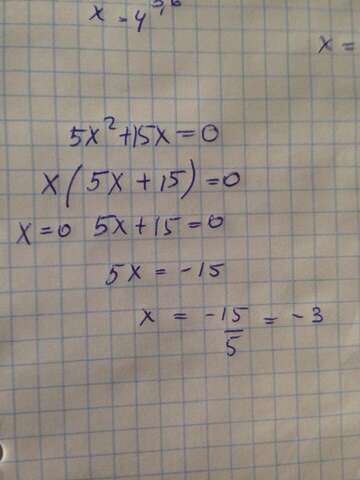 x =
5x² + 15x = 0
x(5x + 15) = 0
x = 0 5x + 15 = 0
5x = -15
x = -15/5 = -3